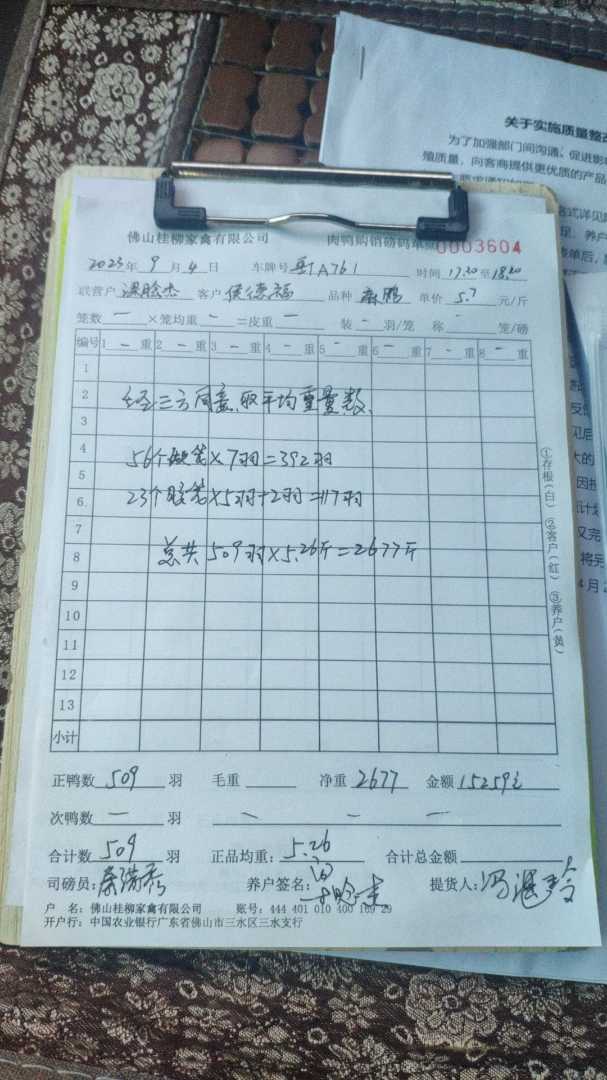 关于实施质量整改
为了加强部门间沟通、促进影
殖质量，向客商提供更优质的产品
佛山桂柳家禽有限公司 肉鸭购销磅码单 0003604
2023年 9月 4日 车牌号 粤TA761 时间 17:20至18:20
联营户 客户 侯德福 品种 麻鸭 单价 5.7 元/斤
笼数 一 ×笼均重 一 =皮重 一 装 - 羽/笼 称 - 笼/磅
编号 1 - 重 2 - 重 3 - 重 4 - 重 5 - 重 6 - 重 7 - 重 8 - 重
1
2
经三方同意,取平均重量数.
3
4
56个 笼×7羽=392羽
5
6
23个胶笼×5羽+2羽=117羽
7
8
总共509羽×5.26斤=2677斤
9
10
11
12
13
小计
①存根(白) ②客户(红) ③养户(黄)
正鸭数 509 羽 毛重 净重 2677 金额 15259元
次鸭数 一 羽 - - -
合计数 509 羽 正品均重: 5.26 合计总金额
司磅员: 养户签名: 提货人:
户 名: 佛山桂柳家禽有限公司 账号: 444 401 010 400 169 29
开户行: 中国农业银行广东省佛山市三水区三水支行